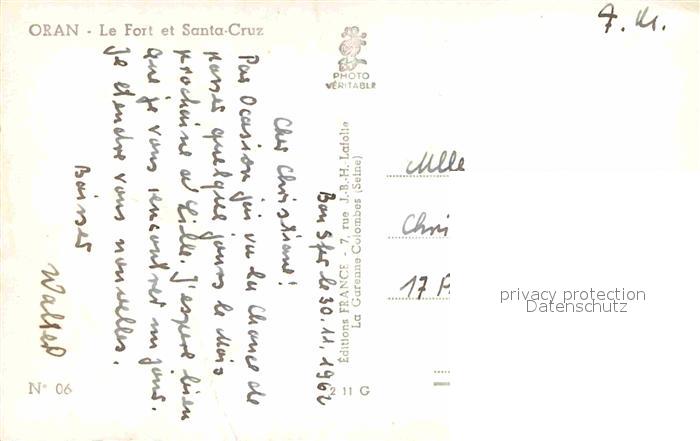 ORAN - Le Fort et Santa-Cruz
7. Kr.
PHOTO
VÉRITABLE
Bou Sfer le 30.11.1962
Cher Christiane!
Pas Ocasion j'ai vu la chance de
passer quelque jours le Mois
prochaine a' Lille. J'espere bien
que je vous rencontrer un jour.
Je attendre vous nouvelles.
Baiser
Walter
Éditions FRANCE - 7, rue J.-B.-H. Lafolie
La Garenne-Colombes (Seine)
Mlle
Chri
17
privacy protection
Datenschutz
N° 06
2 11 G